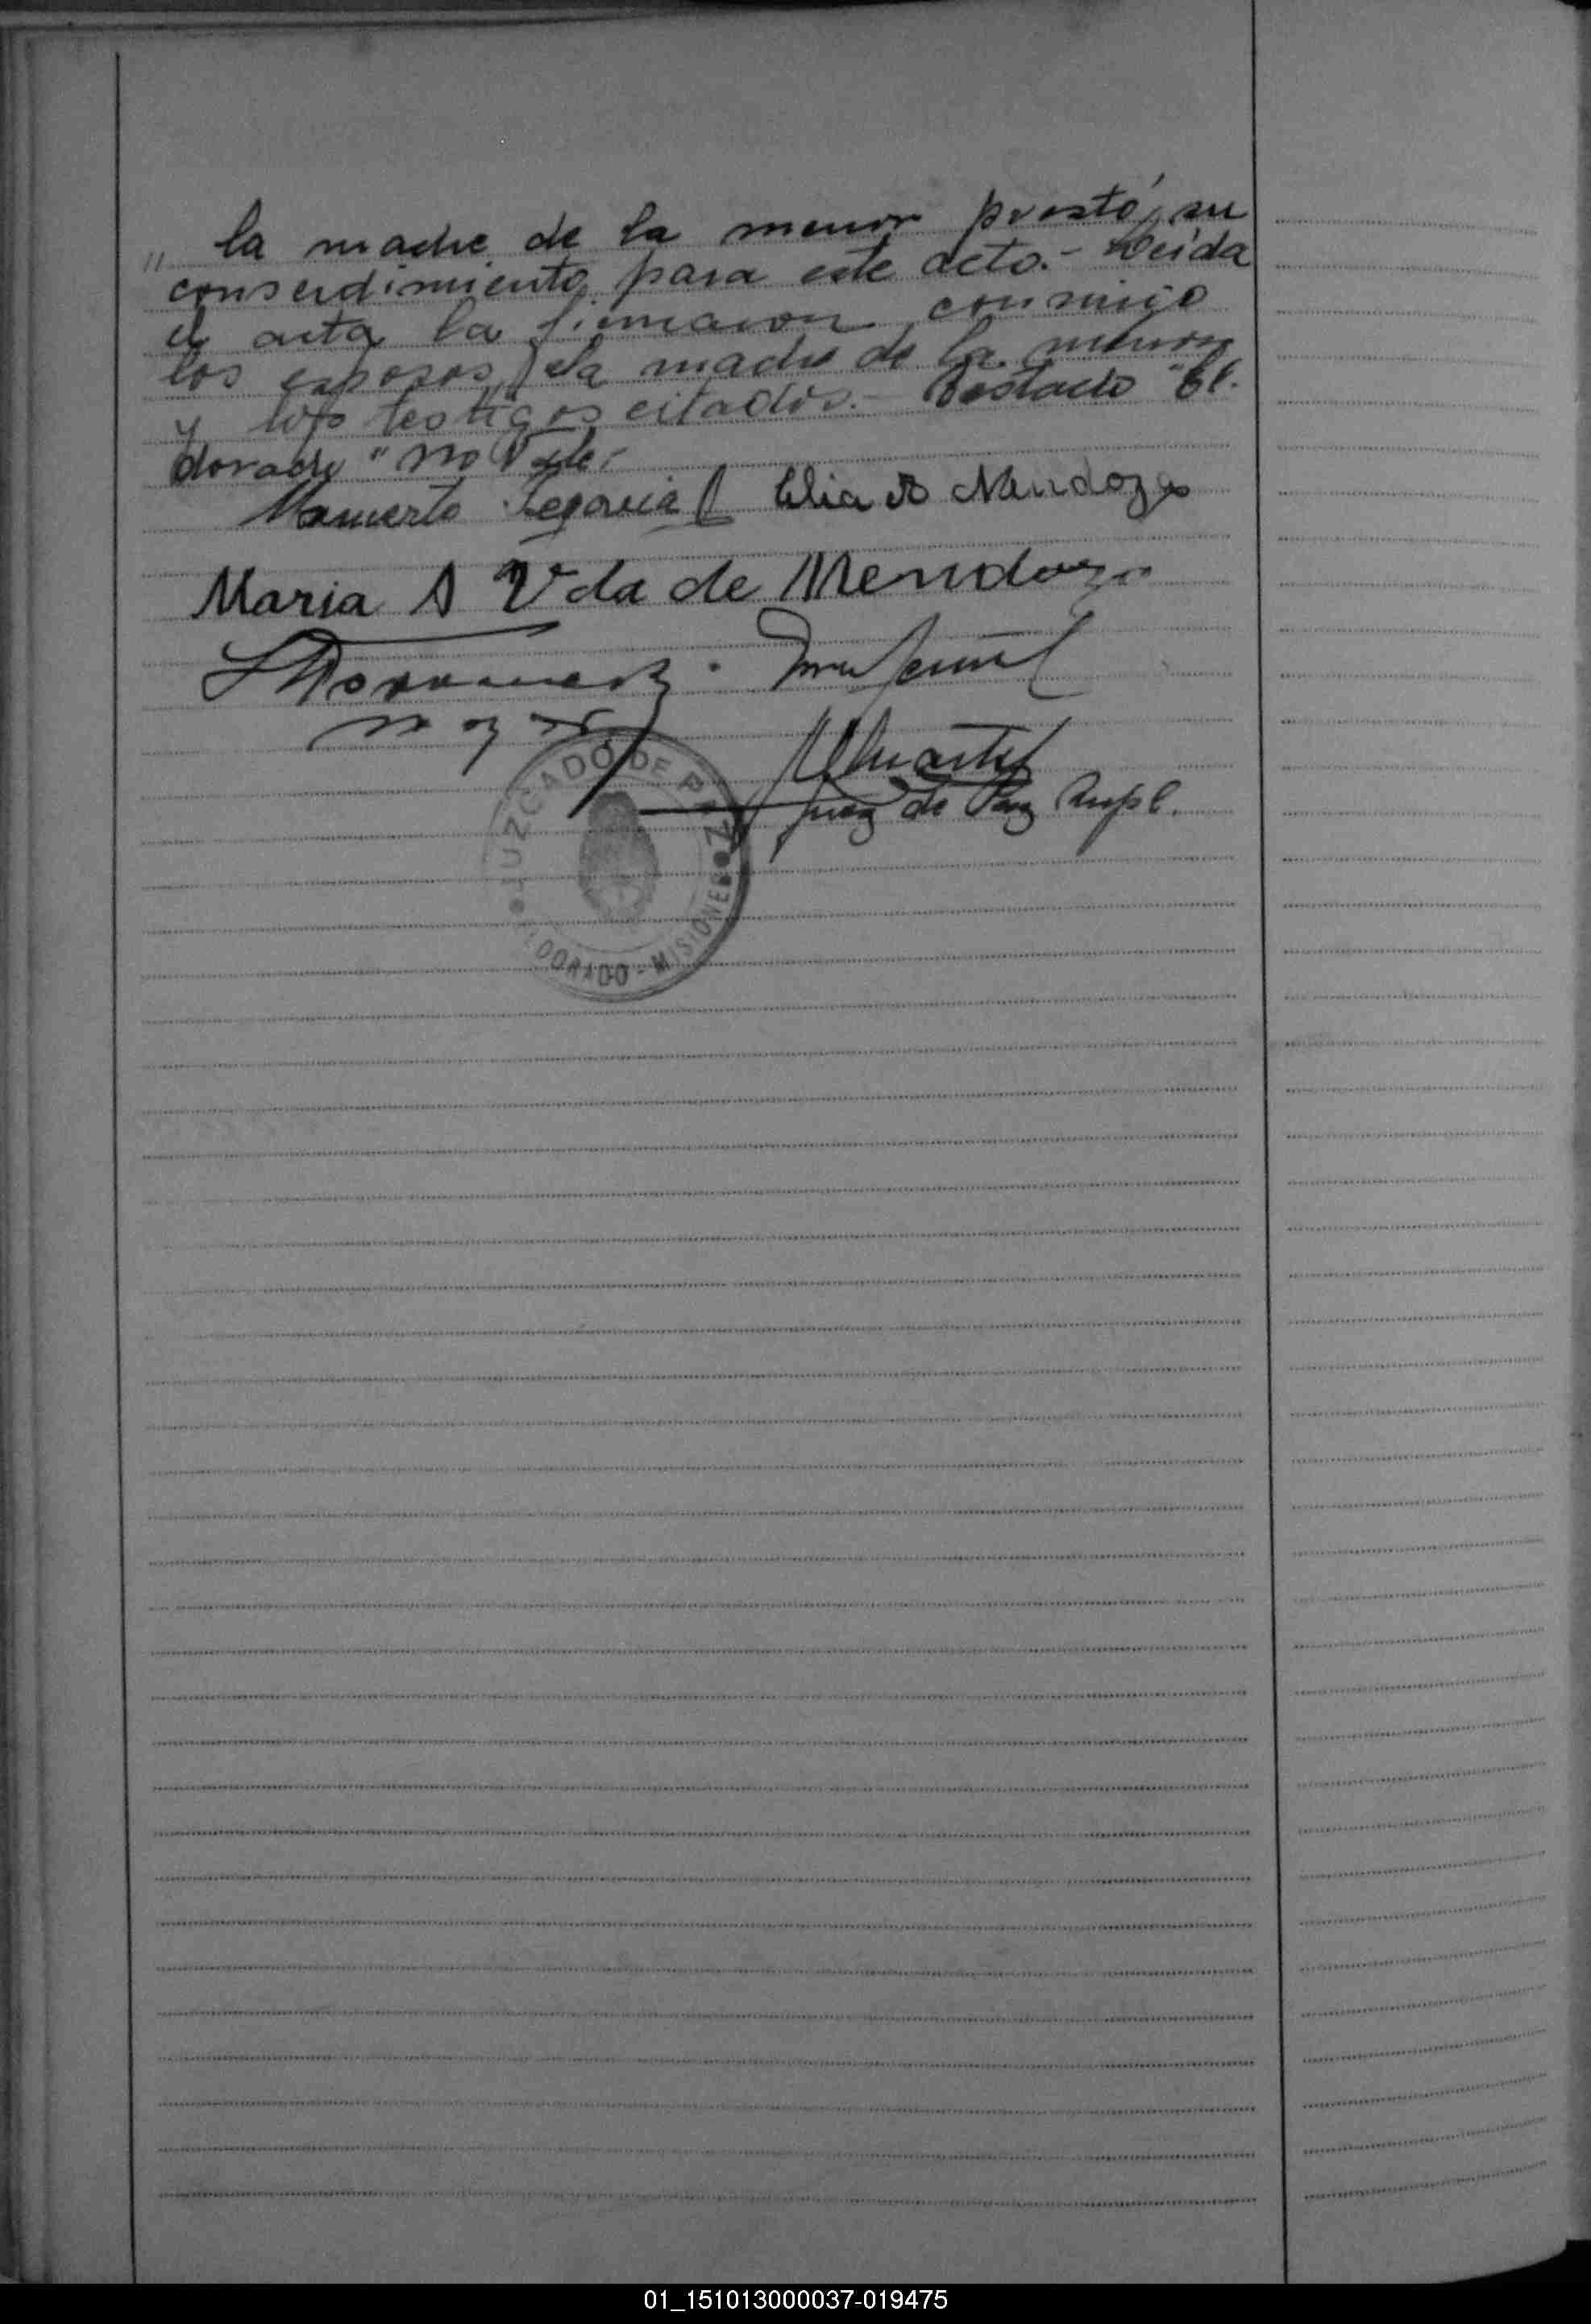 " la madre de la menor prestó, su
consedimiento para este acto.- Leída
el acta la firmaron conmigo
los esposos, la madre de la menor
y los testigos citados.- Testado "El.
dorado" no Vale.-
Mamerto Segovia Elia A Mendoza
Maria A Vda de Mendoza
Juez de Paz Supl.
JUZGADO DE PAZ
ELDORADO - MISIONES
01_151013000037-019475